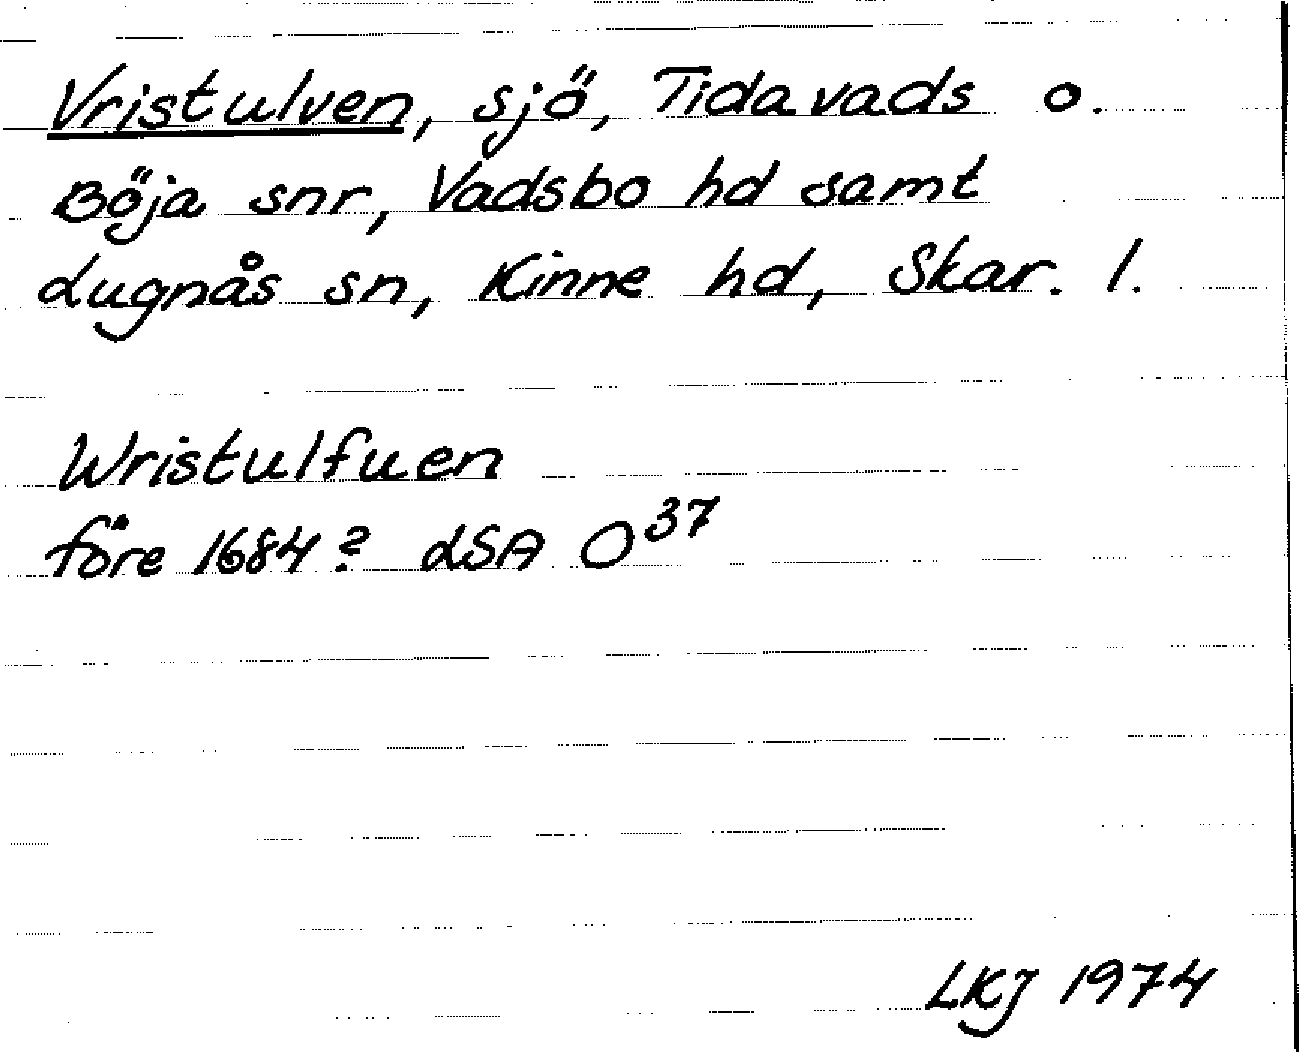 Vristulven, sjö, Tidavads o.
Böja snr, Vadsbo hd samt
Lugnås sn, Kinne hd, Skar. l.
Wristulfuen
före 1684? LSA O³⁷
LKJ 1974